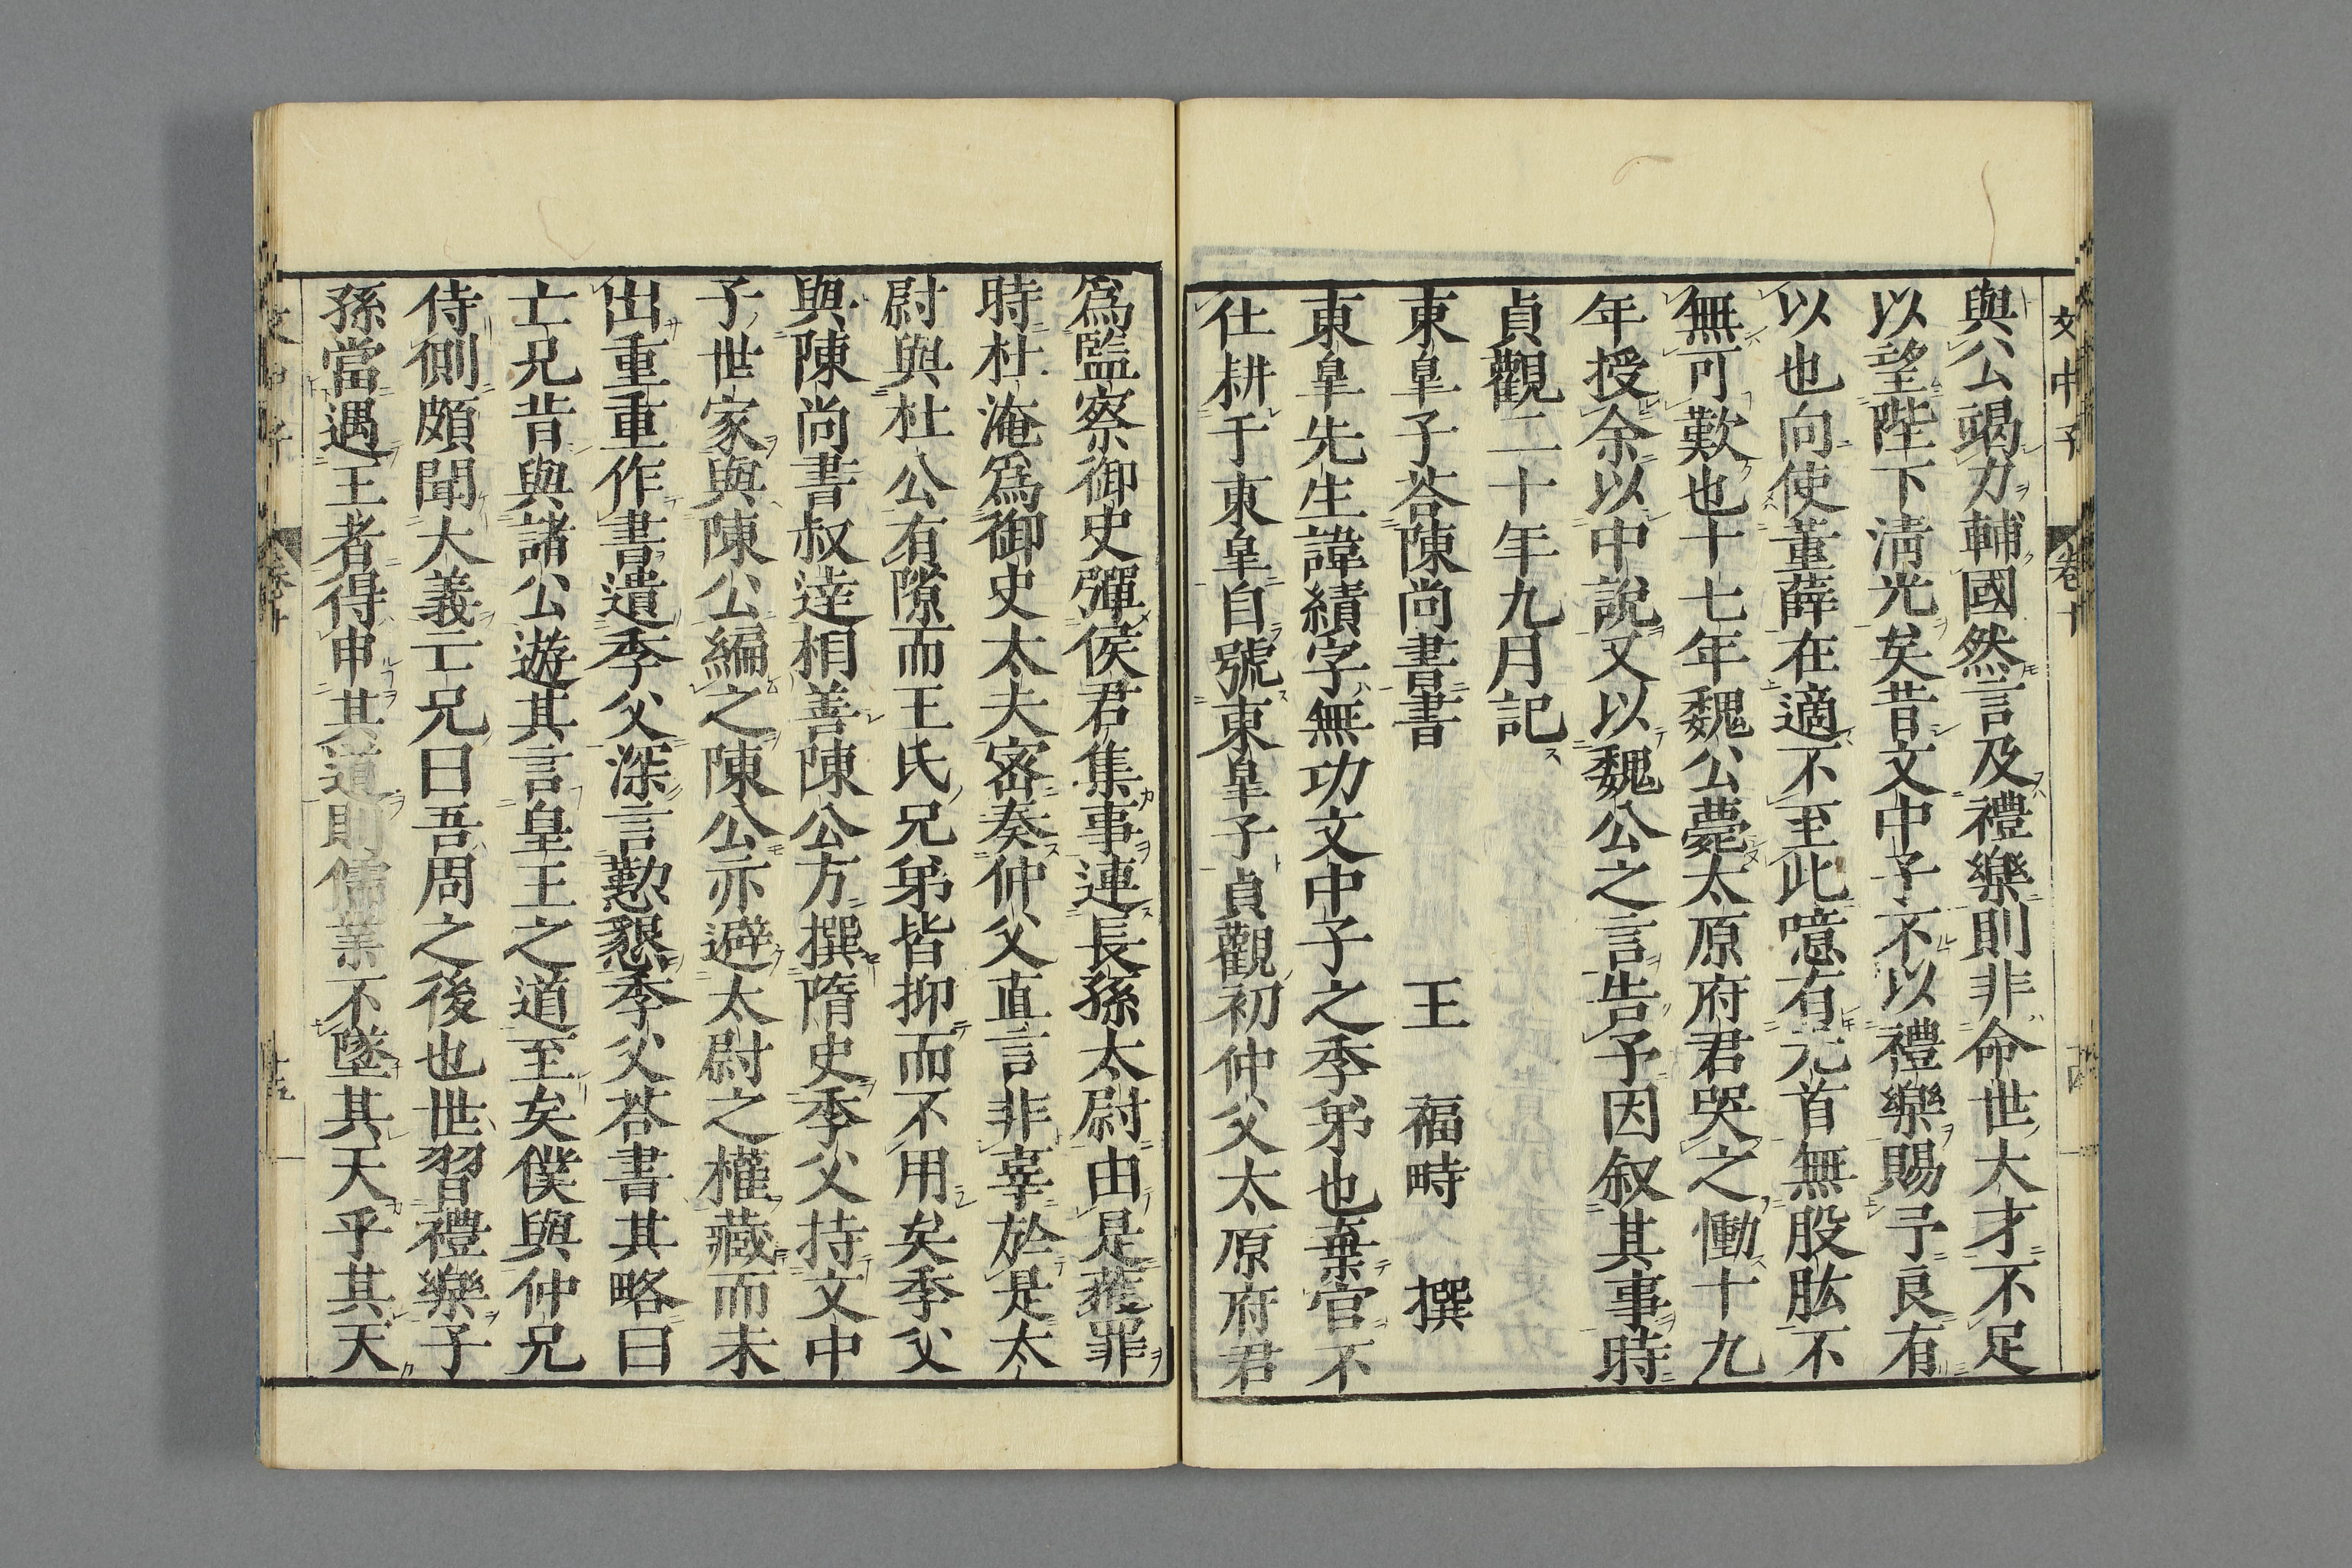 文中子 卷十 十四
與公竭力輔國然言及禮樂則非命世大才不足
以望陛下清光矣昔文中子不以禮樂賜予良有
以也向使董薛在適不至此噫有元首無股肱不
無可歎也十七年魏公薨太原府君哭之慟十九
年授余以中說又以魏公之言告予因叙其事時
貞觀二十年九月記
東皐子荅陳尚書書 王 福畤 撰
東皐先生諱績字無功文中子之季弟也棄官不
仕耕于東皐自號東皐子貞觀初仲父太原府君
爲監察御史彈侯君集事連長孫太尉由是獲罪
時杜淹爲御史太夫密奏仲父直言非辜於是太
尉與杜公有隙而王氏兄弟皆抑而不用矣季父
與陳尚書叔達相善陳公方撰隋史季父持文中
子世家與陳公編之陳公亦避太尉之權藏而未
出重重作書遺季父深言懃懇季父荅書其略曰
亡兄昔與諸公遊其言皇王之道至矣僕與仲兄
侍側頗聞大義亡兄曰吾周之後也世習禮樂子
孫當遇王者得申其道則儒業不墜其天乎其天
文中子 卷十 十五